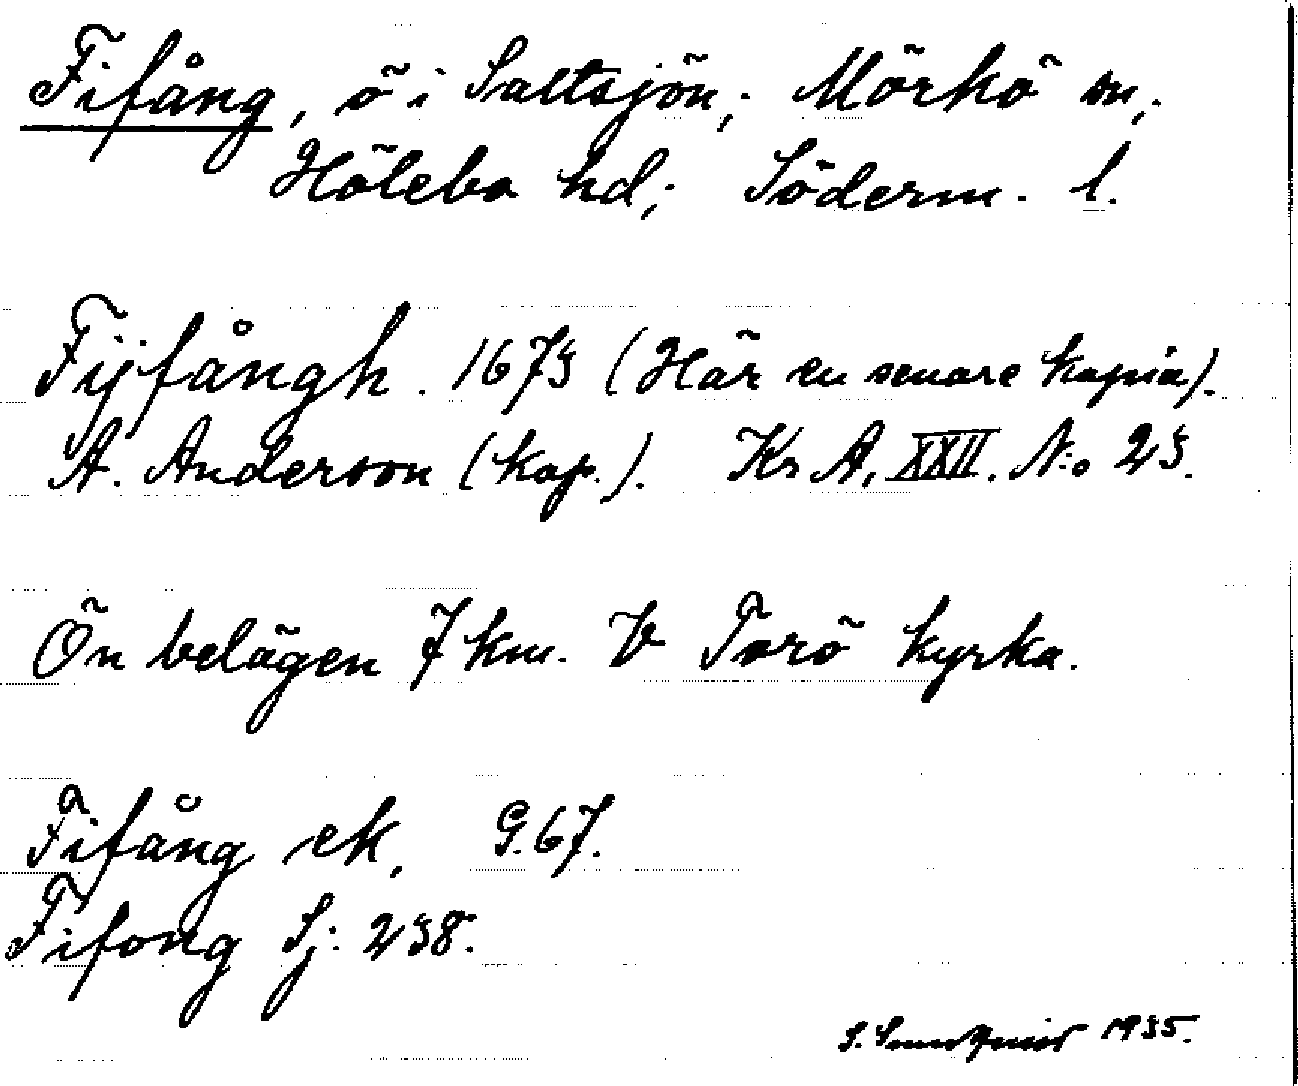 Fifång, ö i Saltsjön; Mörkö sn;
Hölebo hd; Söderm. l.
Fijfångh. 1673 (Här en senare kopia).
A. Anderson (kop.). Kr A, XXII. N:o 23.
Ön belägen 7 km. V Torö kyrka.
Fifång ek, G.67.
Fifong Sj: 238.
S. 1935.